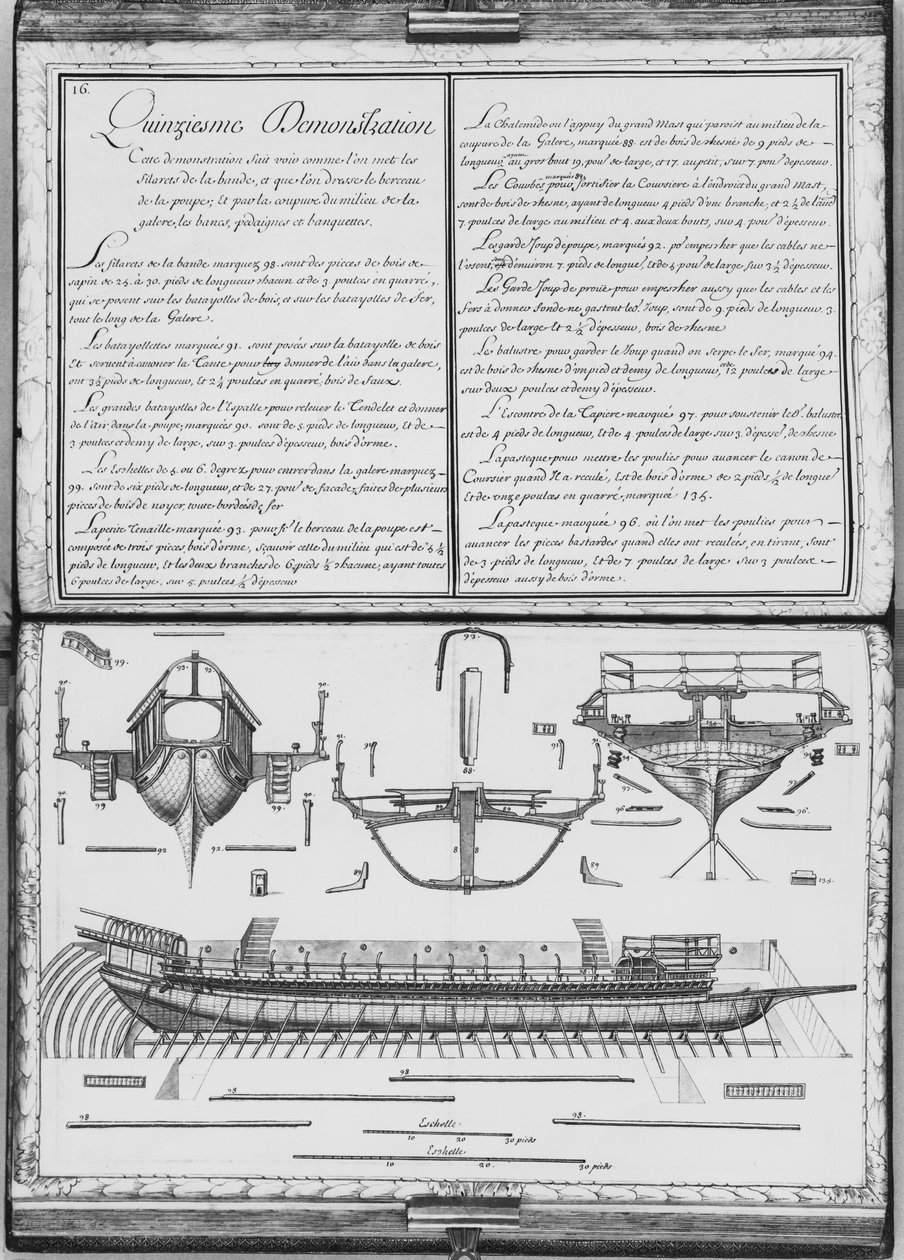 16.
Quinziesme Demonstration
Cette demonstration fait voir comme l'on met les
filarets de la bande, et que l'on dresse le berceau
de la poupe; Et par la coupure du milieu de la
galere, les bancs, pedaignes et banquettes.
Les filarets de la bande marquez 98. sont des pieces de bois de
sapin de 25. à 30. pieds de longueur chacun et de 3. poulces en quarré,
qui se posent sur les batayolles de bois, et sur les batayolles de fer,
tout le long de la Galere.
Les batayollettes marquées 91. sont posées sur la batayolle de bois
Et servent à amorer la Tante pour donner de l'air dans la galere,
ont 3½ pieds de longueur, et 2¼ poulces en quarré, bois de faux.
Les grandes batayolles de l'Espalle pour relever le Tendelet et donner
de l'air dans la poupe, marquées 90. sont de 5. pieds de longueur, Et de
3 poulces et demy de large, sur 3. poulces d'épesseur, bois d'orme.
Les Eschelles de 5. ou 6. degrez pour entrer dans la galere marquez
99. sont de six pieds de longueur, et de 27. pou.ˢ de façade, faites de plusieurs
pieces de bois de noyer, toute bordées de fer
La petite Tenaille marquée 93. pour le berceau de la poupe est
composée de trois pieces bois d'orme, sçavoir celle du milieu qui est de 5 ½
pieds de longueur, Et les deux branches de 6 pieds ½ chacune, ayant toutes
6 poulces de large, sur 5. poulces ½ d'épesseur
La Chatemide ou l'appuy du grand Mast qui paroist au milieu de la
coupure de la Galere, marquée 88. est de bois de chesne de 9 pieds de
longueur, ayant au gros bout 19, pou.ˢ de large, et 17. au petit, sur 7. pou.ˢ d'epesseur.
Les Courbes marquées 89. pour fortifier la Coursiere à l'endroict du grand Mast,
sont de bois de chesne, ayant de longueur 4 pieds d'une branche, et 2½ de l'autre
7. poulces de large au milieu et 4. aux deux bouts, sur 4. pou.ˢ d'épesseur.
Les garde Joup de poupe, marqués 92. po.ʳ empescher que les cables ne
l'usent, sont d'environ 7. pieds de longue.ʳ Et de 5 pou.ˢ de large sur 3½ d'épesseur.
Les Garde Joup de proüe pour empescher aussy que les cables et les
fers à donner fonde ne gastent led. Joup, sont de 9. pieds de longueur. 3.
poulces de large Et 2½ d'épesseur, bois de chesne
Le balustre pour garder le Joup quand on serpe le fer, marqué 94.
est de bois de chesne d'un pied et demy de longueur, et de 12 poulces de large
sur deux poulces et demy d'épesseur.
L'Escontre de la Tapiere marqués 97. pour soustenir led. balustre
est de 4 pieds de longueur, Et de 4. poulces de large sur 3. d'épess.ʳ de chesne
La pasteque pour mettre les poulies pour avancer le canon de
Coursier quand Il a reculé, Est de bois d'orme de 2 pieds ½ de longue.ʳ
Et de onze poulces en quarré, marquée 135.
La pasteque marquée 96. où l'on met les poulies pour
avancer les pieces bastardes quand elles ont reculées, en tirant, sont
de 3. pieds de longueur, Et de 7. poulces de large sur 3 poulces
d'épesseur aussy de bois d'orme.
99.
93.
93.
90.
90.
99
99
92
92.
93.
88.
91
91
91
91
89
89
8 8
89
89
134
94
94
97.
97
96
96.
135.
98
98
98
98
98
98
98.
Eschelle
10 20 30 pieds
Eschelle
10 20. 30 pieds